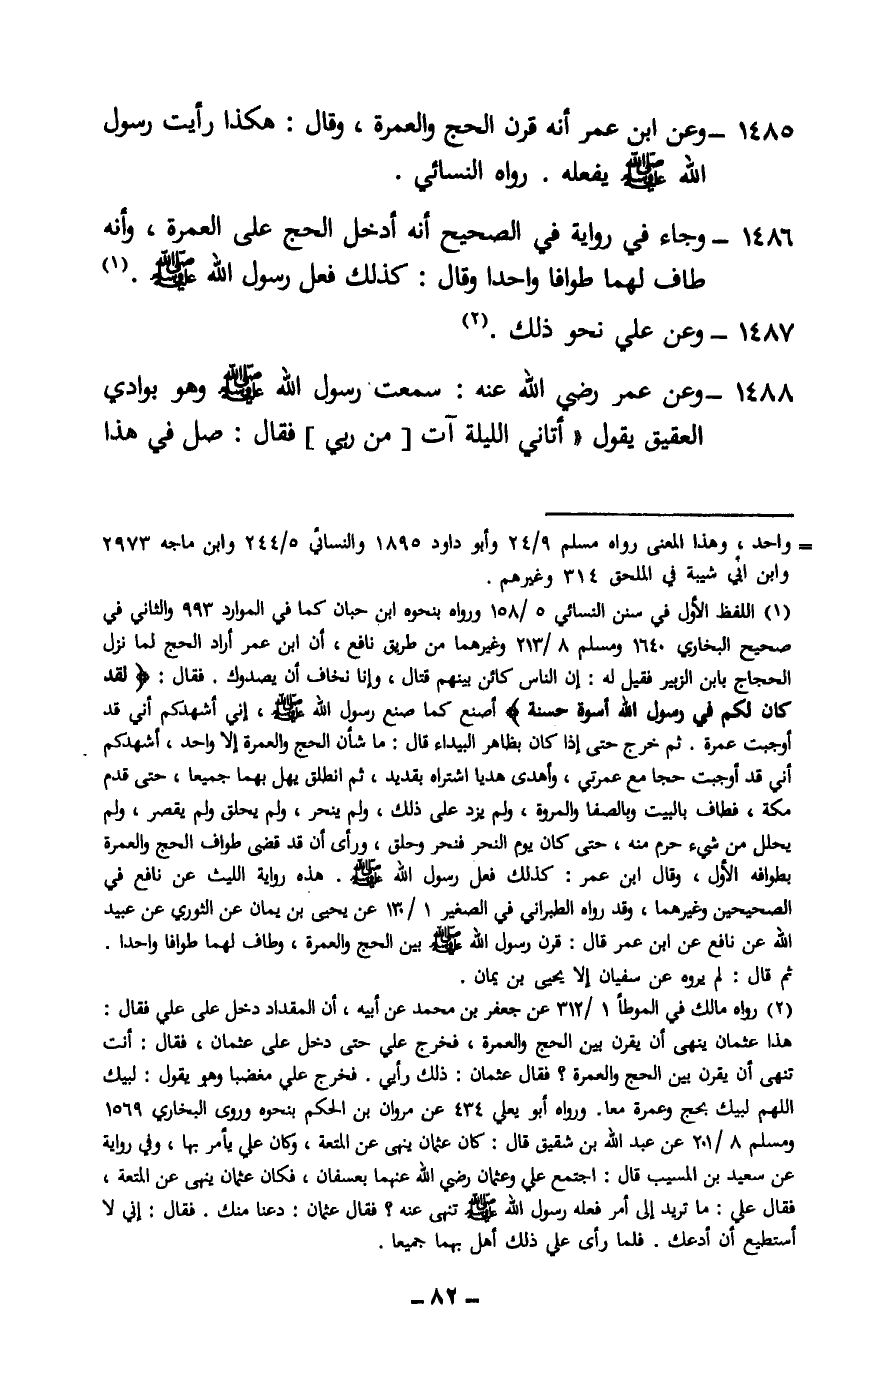 ١٤٨٥ – وعن ابن عمر أنه قرن الحج والعمرة ، وقال : هكذا رأيت رسول
الله ﷺ يفعله . رواه النسائي .
١٤٨٦ – وجاء في رواية في الصحيح أنه أدخل الحج على العمرة ، وأنه
طاف لهما طوافا واحدا وقال : كذلك فعل رسول الله ﷺ .(١)
١٤٨٧ – وعن علي نحو ذلك .(٢)
١٤٨٨ – وعن عمر رضي الله عنه : سمعت رسول الله ﷺ وهو بوادي
العقيق يقول « أتاني الليلة آت [ من ربي ] فقال : صل في هذا
= واحد ، وهذا المعنى رواه مسلم ٢٤/٩ وأبو داود ١٨٩٥ والنسائي ٢٤٤/٥ وابن ماجه ٢٩٧٣
وابن أبي شيبة في الملحق ٣١٤ وغيرهم .
(١) اللفظ الأول في سنن النسائي ٥ /١٥٨ ورواه بنحوه ابن حبان كما في الموارد ٩٩٣ والثاني في
صحيح البخاري ١٦٤٠ ومسلم ٨ /٢١٣ وغيرهما من طريق نافع ، أن ابن عمر أراد الحج لما نزل
الحجاج بابن الزبير فقيل له : إن الناس كائن بينهم قتال ، وإنا نخاف أن يصدوك . فقال : ﴿ لقد
كان لكم في رسول الله أسوة حسنة ﴾ أصنع كما صنع رسول الله ﷺ ، إني أشهدكم أني قد
أوجبت عمرة . ثم خرج حتى إذا كان بظاهر البيداء قال : ما شأن الحج والعمرة إلا واحد ، أشهدكم
أني قد أوجبت حجا مع عمرتي ، وأهدى هديا اشتراه بقديد ، ثم انطلق يهل بهما جميعا ، حتى قدم
مكة ، فطاف بالبيت وبالصفا والمروة ، ولم يزد على ذلك ، ولم ينحر ، ولم يحلق ولم يقصر ، ولم
يحلل من شيء حرم منه ، حتى كان يوم النحر فنحر وحلق ، ورأى أن قد قضى طواف الحج والعمرة
بطوافه الأول ، وقال ابن عمر : كذلك فعل رسول الله ﷺ . هذه رواية الليث عن نافع في
الصحيحين وغيرهما ، وقد رواه الطبراني في الصغير ١ /١٣٠ عن يحيى بن يمان عن الثوري عن عبيد
الله عن نافع عن ابن عمر قال : قرن رسول الله ﷺ بين الحج والعمرة ، وطاف لهما طوافا واحدا .
ثم قال : لم يروه عن سفيان إلا يحيى بن يمان .
(٢) رواه مالك في الموطأ ١ /٣١٢ عن جعفر بن محمد عن أبيه ، أن المقداد دخل على علي فقال :
هذا عثمان ينهى أن يقرن بين الحج والعمرة ، فخرج علي حتى دخل على عثمان ، فقال : أنت
تنهى أن يقرن بين الحج والعمرة ؟ فقال عثمان : ذلك رأيي . فخرج علي مغضبا وهو يقول : لبيك
اللهم لبيك بحج وعمرة معا. ورواه أبو يعلي ٤٣٤ عن مروان بن الحكم بنحوه وروى البخاري ١٥٦٩
ومسلم ٨ /٢٠١ عن عبد الله بن شقيق قال : كان عثمان ينهى عن المتعة ، وكان علي يأمر بها ، وفي رواية
عن سعيد بن المسيب قال : اجتمع علي وعثمان رضي الله عنهما بعسفان ، فكان عثمان ينهى عن المتعة ،
فقال علي : ما تريد إلى أمر فعله رسول الله ﷺ تنهى عنه ؟ فقال عثمان : دعنا منك . فقال : إني لا
أستطيع أن أدعك . فلما رأى علي ذلك أهل بهما جميعا .
– ٨٢ –